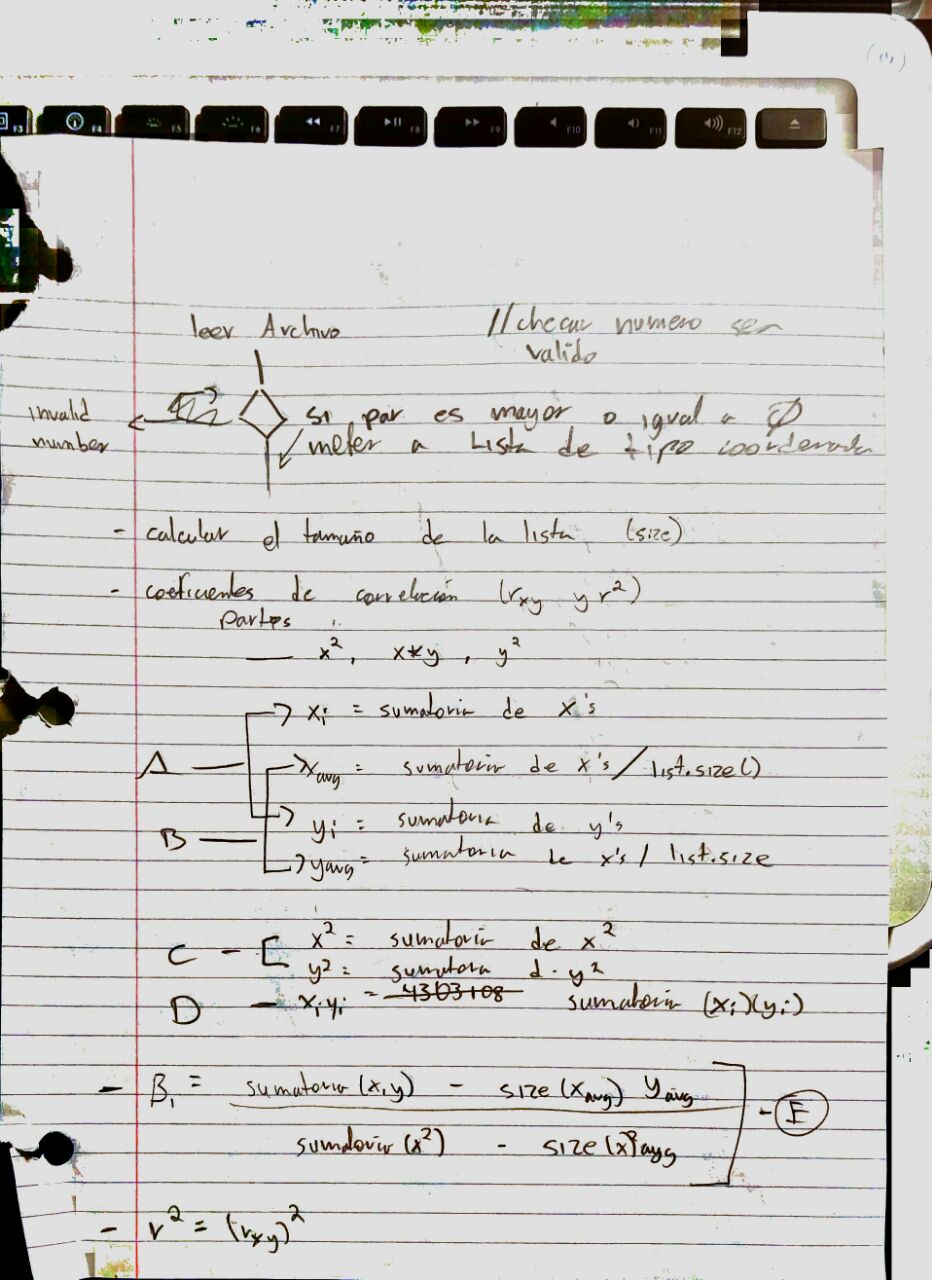 F3 F4 F5 F6 F7 F8 F9 F10 F11 F12
leer Archivo //checar numero sea
valido
invalid si par es mayor o igual a Ø
number meter a Lista de tipo coordenada
- calcular el tamaño de la lista (size)
- coeficientes de correlación (rxy y r²)
partes
— x², x*y, y²
xi = sumatoria de x's
A — xavg = sumatoria de x's / list.size()
yi = sumatoria de y's
B — yavg = sumatoria de x's / list.size
x² = sumatoria de x²
C - [ y² = sumatoria d. y²
D — xi·yi = 4303108 sumatoria (xi)(yi)
- B1 = sumatoria (x,y) - size (xavg) yavg
sumatoria (x²) - size (x)²avg
- E
- r² = (rxy)²